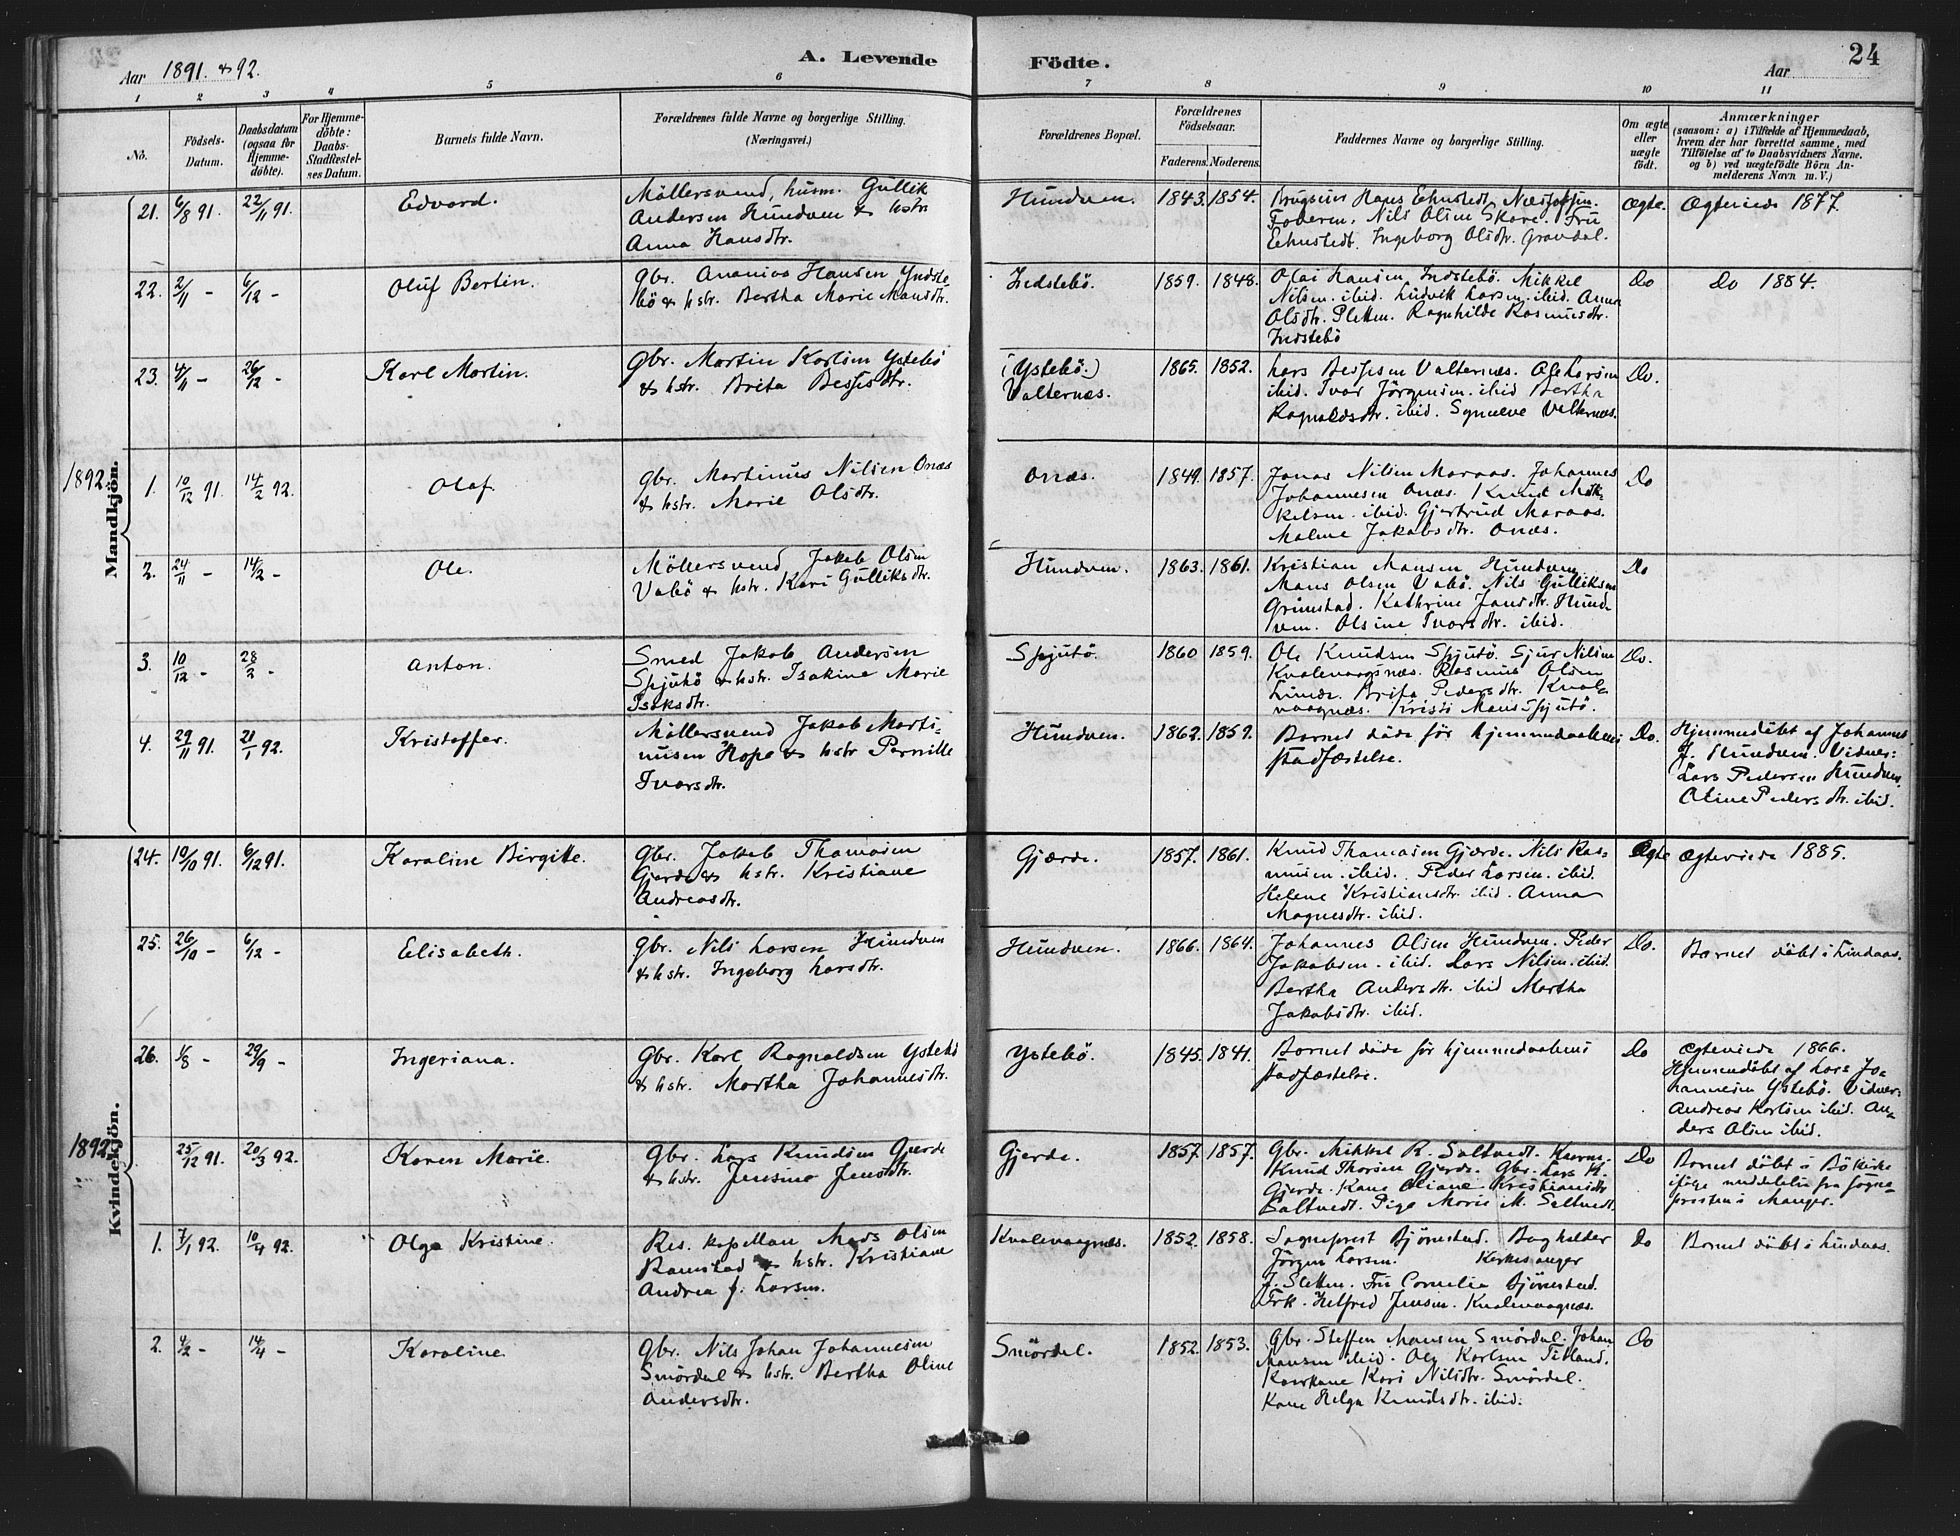 Aar 1891. & 92.
A. Levende
Födte.
Aar
24
1 2 3 4 5 6 7 8 9 10 11
No.
Födsels-
Datum.
Daabsdatum
(ogsaa for
Hjemme-
döbte).
For Hjemme-
döbte:
Daabs-
Stadfæstel-
ses Datum.
Barnets fulde Navn.
Forældrenes fulde Navne og borgerlige Stilling.
(Næringsvei.)
Forældrenes Bopæl.
Forældrenes
Födselsaar.
Faderens. Moderens.
Faddernes Navne og borgerlige Stilling.
Om ægte
eller
uægte
födt.
Anmærkninger
(saasom: a) i Tilfælde af Hjemmedaab,
hvem der har forrettet samme, med
Tilföielse af to Daabsvidners Navne.
og b) ved uægtefödte Börn An-
melderens Navn m. V.)
Mandkjön.
21. 6/8 91. 22/11 91. Edvard.
Möllersvend, husm. Gullik
Andersen Hundven & hstr
Anna Hansdtr.
Hundven. 1843. 1854.
Nils Olsen Skare. Fru
Ehnstedt. Ingeborg Olsdtr. Gravdal.
Ægte. Ægteviede 1877.
22. 2/11 - 6/12 - Oluf Bertin.
Gbr. Ananias Hansen Yndste
bö & hstr. Bertha Marie Mansdtr.
Indstebö. 1859. 1848.
Olai Hansen Indstebö. Mikkel
Nilsen. ibid. Ludvik Larsen. ibid. Anna
Olsdtr. Sletten. Ragnhilde Rasmusdtr.
Indstebö
Do Do 1884.
23. 4/11 - 26/12 - Karl Martin.
Gbr. Martin Karlsen Ystebö
& hstr. Brita Bessesdtr.
(Ystebö.)
Valternæs.
1865. 1852.
Lars Bessesen Valternæs. Ole Larsen
ibid. Ivar Jörgensen. ibid Bertha
Ragnaldsdtr. ibid. Synneve Valternæs.
Do.
1892.
1. 10/12 91. 14/2 92. Olaf.
Gbr. Martinus Nilsen Onæs
& hstr. Marie Olsdtr.
Onæs. 1849. 1857.
Jonas Nilsen Maraas. Johannes
Johannesen Onæs. Knud Mik-
kelsen. ibid. Gjertrud Maraas.
Malene Jakobsdtr. Onæs.
Do
2. 24/11 - 14/2 - Ole.
Möllersvend Jakob Olsen
Vabö & hstr. Kari Gulliksdtr.
Hundven. 1863. 1861.
Kristian Mansen Hundven
Mans Olsen Vabö. Nils Gulliksen
Grimstad. Kathrine Jansdtr. Hund
ven. Olsine Ivarsdtr. ibid.
Do
3. 10/12 - 28/2 - Anton.
Smed Jakob Andersen
Spjutö & hstr. Isakine Marie
Isaksdtr.
Spjutö. 1860 1859.
Ole Knudsen Spjutö. Sjur Nilsen
Kvalevaagnæs. Rasmus Olsen
Lunde. Brita Pedersdtr. Kval-
vaagnæs. Kristi Mans Spjutö.
Do.
4. 29/11 91. 21/1 92. Kristoffer.
Möllersvend Jakob Marti-
nusen Hope & hstr Pernille
Ivarsdtr.
Hundven. 1862. 1859.
Barnet döde för hjemmedaabens
stadfæstelse.
Do.
Hjemmedöbt af Johannes
J. Hundven. Vidner:
Lars Pedersen Hundven
Oline Pedersdtr. ibid.
Kvindekjön.
24. 10/10 91. 6/12 91. Karoline Birgitte.
Gbr. Jakob Thomasen
Gjerde & hstr. Kristiane
Andreasdtr.
Gjærde. 1857. 1861.
Knud Thomasen Gjærde. Nils Ras-
musen. ibid. Peder Larsen. ibid.
Helene Kristiansdtr. ibid. Anna
Magnesdtr. ibid.
Ægte Ægteviede 1885.
25. 26/10 - 6/12 - Elisabeth.
Gbr. Nils Larsen Hundven
& hstr. Ingeborg Larsdtr.
Hundven. 1866. 1864.
Johannes Olsen Hundven. Peder
Jakobsen. ibid. Lars Nilsen. ibid.
Bertha Andersdtr. ibid Martha
Jakobsdtr. ibid.
Do. Barnet döbt i Lindaas.
26. 1/8 - 29/9 - Ingeriana.
Gbr. Karl Ragnaldsen Ystebö
& hstr. Martha Johannesdtr.
Ystebö. 1845. 1841.
Barnet döde för hjemmedaabens
stadfæstelse.
Do
Ægteviede 1866.
Hjemmedöbt af Lars Jo-
hannesen Ystebö. Vidner:
Andreas Karlsen ibid. An-
ders Olsen ibid.
1892.
25/12 91. 20/3 92. Karen Marie.
Gbr. Lars Knudsen Gjerde
& hstr. Jensine Jensdtr.
Gjerde. 1857 1857.
Gbr. Mikkel R. Saltvedt.
Knud Thorsen Gjerde. Gbr. Lars K.
Gjerde. Kone Oliane Kristiansdtr
Saltvedt. Pige Marie M. Saltvedt.
Do
Barnet döbt i Bö Kirke
ifölge meddelelse fra sogne-
presten i Manger.
1. 7/1 92. 10/4 92. Olga Kristine.
Res. kapellan Mads Olsen
Ramstad & hstr. Kristiane
Andrea f. Larsen.
Kvalevaagnæs. 1852. 1858.
Sogneprest Bjönestad. Bogholder
Jörgen Larsen. Kirkesanger
J. Sletten. Fru Cornelia Bjönestad.
Frk. Helfred Jensen. Kvalevaagnæs.
Do Barnet döbt i Lindaas.
2. 4/2 - 14/4 - Karoline
Gbr. Nils Johan Johannesen
Smördal & hstr. Bertha Oline
Andersdtr.
Smördal. 1852. 1853.
Gbr. Steffen Mansen Smördal. Johan
Mansen ibid. Ole Karlsen Titland.
Kari Nilsdtr. Smördal.
Kone Helga Knudsdtr. ibid.
Do